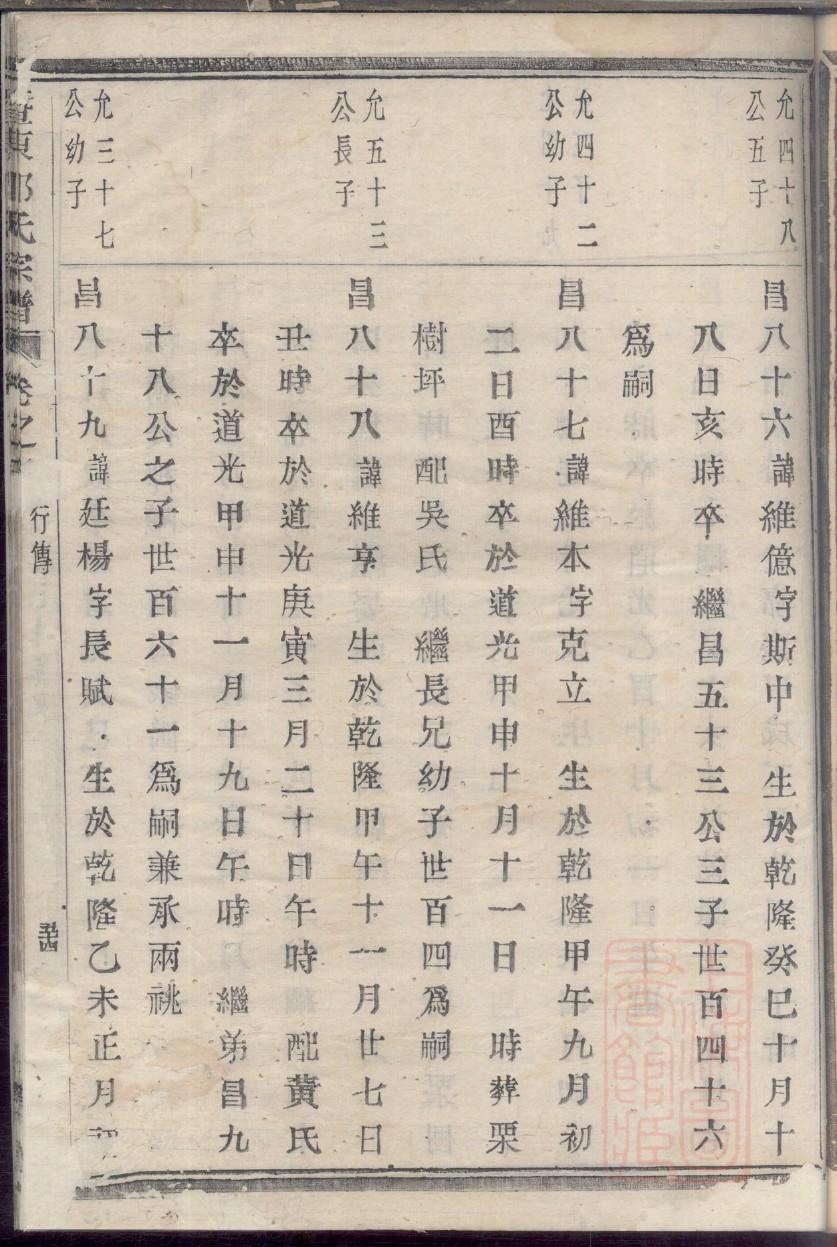 允四十八
公五子
昌八十六諱維億字斯中　生於乾隆癸巳十月十
八日亥時卒　繼昌五十三公三子世百四十六
爲嗣
允四十二
公幼子
昌八十七諱維本字克立　生於乾隆甲午九月初
二日酉時卒於道光甲申十月十一日　時葬栗
樹坪　配吳氏　繼長兄幼子世百四爲嗣
允五十三
公長子
昌八十八諱維亨　生於乾隆甲午十一月廿七日
丑時卒於道光庚寅三月二十日午時　配黃氏
卒於道光甲申十一月十九日午時　繼弟昌九
十八公之子世百六十一爲嗣兼承兩祧
允三十七
公幼子
昌八十九諱廷楊字長賦　生於乾隆乙未正月初
東氏宗譜　卷之　行傳